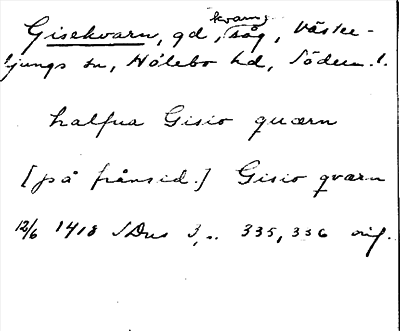 Gisekvarn, gd, kvarn, såg, Västerljungs sn, Hölebo hd, Söderm.l.
halfua Gisio quærn
[på frånsid.] Gisio qværn
12/6 1418 SDns 3, s. 335, 336 orig.